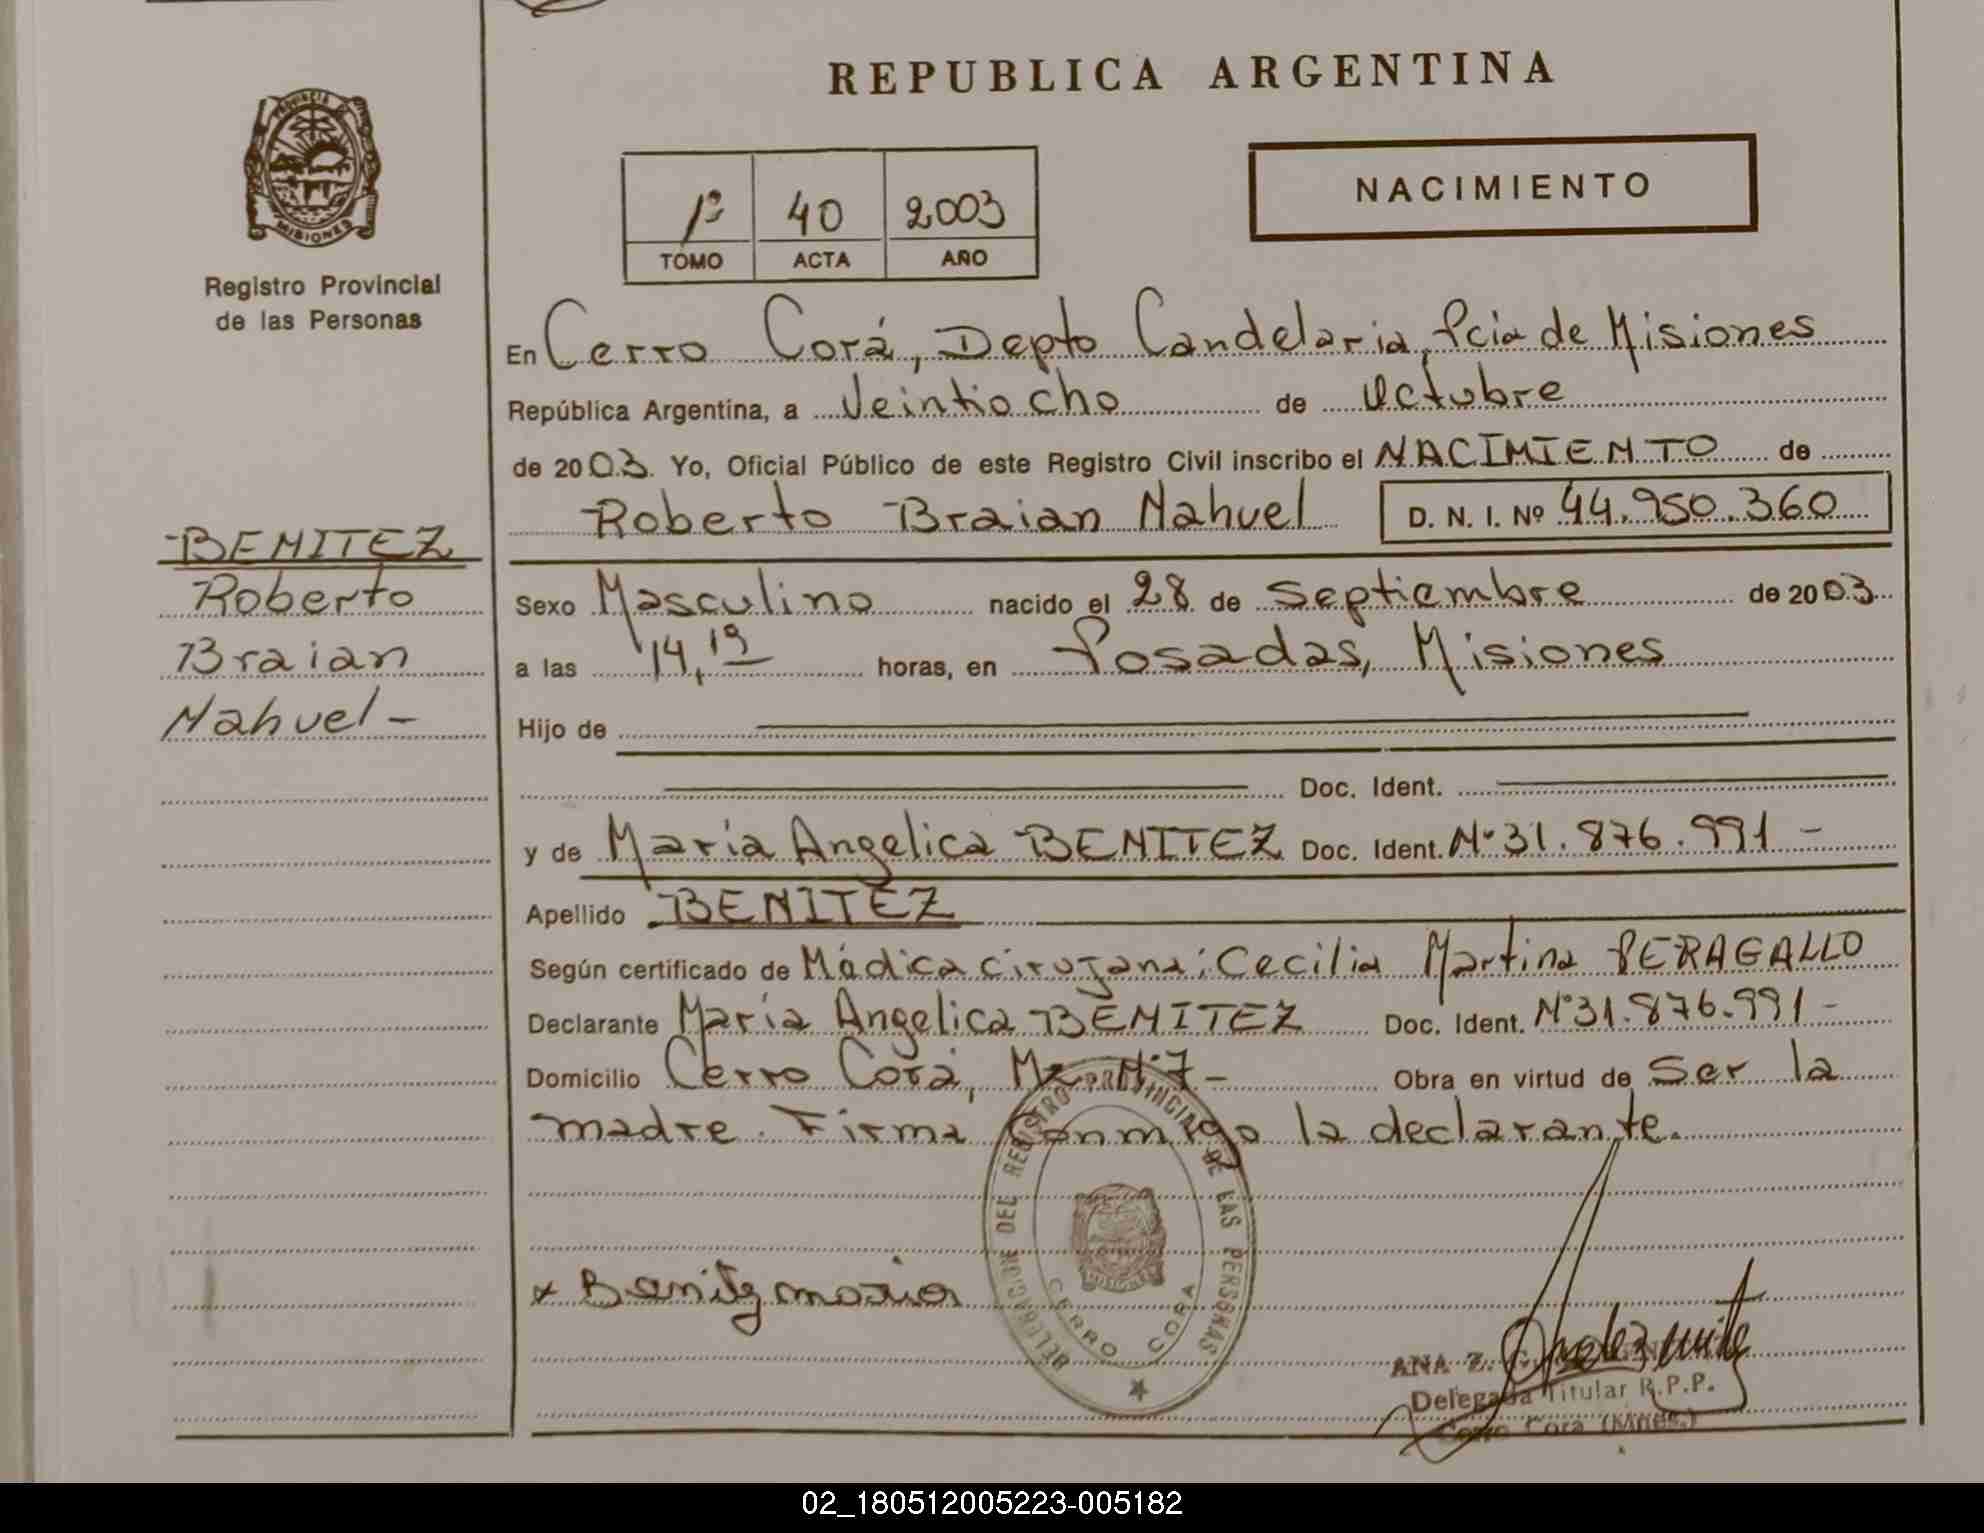 REPUBLICA ARGENTINA
PROVINCIA DE
MISIONES
Registro Provincial
de las Personas
1º 40 2003
TOMO ACTA AÑO
NACIMIENTO
En Cerro Corá, Depto Candelaria, Pcia de Misiones
República Argentina, a Veintiocho de Octubre
de 2003. Yo, Oficial Público de este Registro Civil inscribo el NACIMIENTO de
Roberto Braian Nahuel D. N. I. Nº 44.950.360
BENITEZ
Roberto
Braian
Nahuel -
Sexo Masculino nacido el 28 de Septiembre de 2003
a las 14,19 horas, en Posadas, Misiones
Hijo de
Doc. Ident.
y de Maria Angelica BENITEZ Doc. Ident. Nº 31.876.991 -
Apellido BENITEZ
Según certificado de Médica cirujana: Cecilia Martina PERAGALLO
Declarante María Angelica BENITEZ Doc. Ident. Nº 31.876.991 -
Domicilio Cerro Corá, Mz Nº 7 - Obra en virtud de Ser la
madre. Firma Conmigo la declarante.
DELEGACION DEL REGISTRO PROVINCIAL DE LAS PERSONAS
MISIONES
CERRO CORA
x Benitez maria
ANA Z.
Delegada Titular R.P.P.
Cerro Corá (Mnes.)
02_180512005223-005182